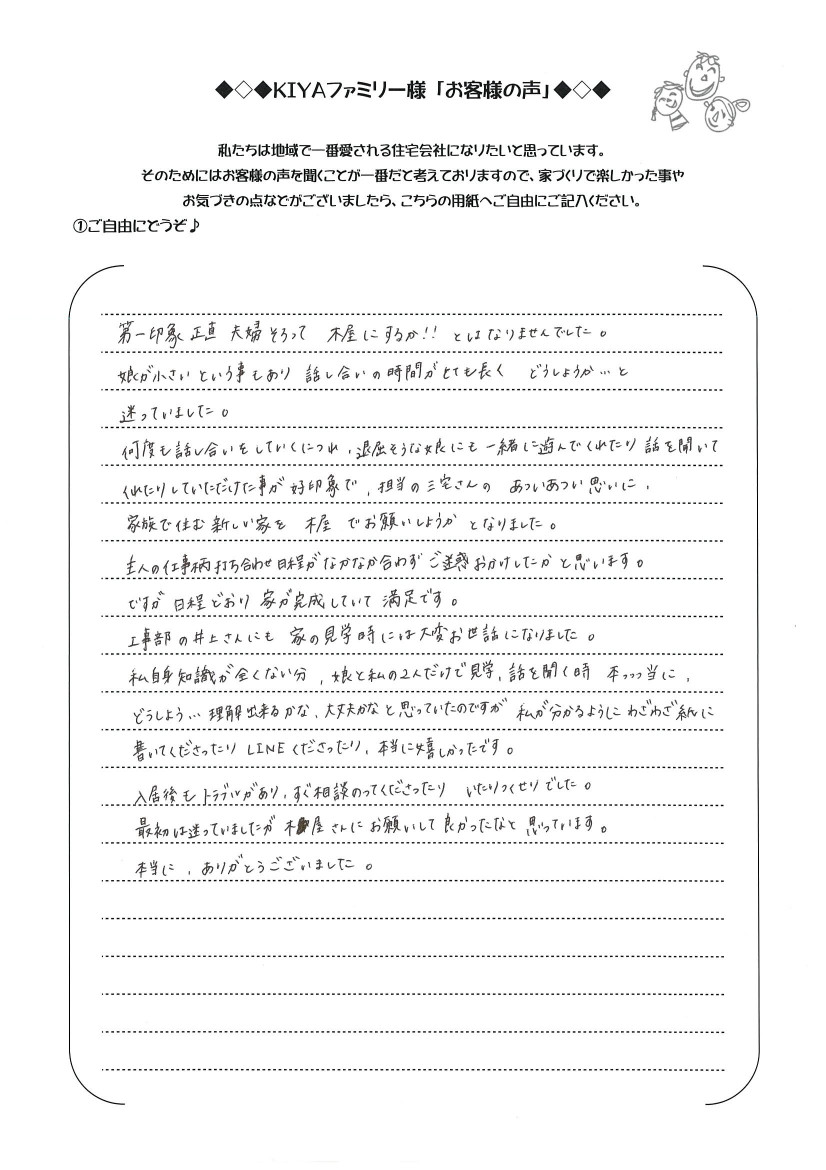 ◆◇◆KIYAファミリー様「お客様の声」◆◇◆
私たちは地域で一番愛される住宅会社になりたいと思っています。
そのためにはお客様の声を聞くことが一番だと考えておりますので、家づくりで楽しかった事や
お気づきの点などがございましたら、こちらの用紙へご自由にご記入ください。
①ご自由にどうぞ♪
第一印象 正直 夫婦そろって 木屋にするか!! とはなりませんでした。
娘が小さいという事もあり 話し合いの時間がとても長く どうしようか…と
迷っていました。
何度も話し合いをしていくにつれ、退屈そうな娘にも一緒に遊んでくれたり 話を聞いて
くれたりしていただけた事が好印象で、担当の三宅さんの あついあつい思いに、
家族で住む新しい家を 木屋 でお願いしようか となりました。
主人の仕事柄打ち合わせ日程がなかなか合わず ご迷惑おかけしたかと思います。
ですが 日程どおり 家が完成していて 満足です。
工事部の井上さんにも 家の見学時には大変お世話になりました。
私自身知識が全くない分、娘と私の2人だけで見学、話を聞く時 本っっっ当に、
どうしよう… 理解出来るかな、大丈夫かなと思っていたのですが 私が分かるように わざわざ紙に
書いてくださったり LINEくださったり、本当に嬉しかったです。
入居後もトラブルがあり、すぐ相談のってくださったり いたりつくせりでした。
最初は迷っていましたが 木屋さんにお願いして良かったなと 思っています。
本当に、ありがとうございました。